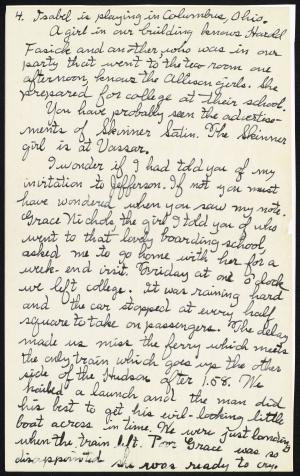 4. Isabel is playing in Columbus, Ohio.
A girl in our building knows Harold
Fasick and another who was in our
party that went to the tea room one
afternoon, knows the Allison girls. She
prepared for college at their school.
You have probably seen the advertise-
ments of Skinner Satin. The Skinner
girl is at Vassar.
I wonder if I had told you of my
invitation to Jefferson. If not you must
have wondered when you saw my note.
Grace Nichols, the girl I told you of who
went to that lovely boarding school,
asked me to go home with her for a
week-end visit. Friday at one o'clock
we left college. It was raining hard
and the car stopped at every half
square to take on passengers. The delay
made us miss the ferry which meets
the only train which goes up the other
side of the Hudson after 1.58. We
hailed a launch and the man did
his best to get his evil-looking little
boat across in time. We were just landing
when the train left. Poor Grace was so
disappointed she was ready to cry.